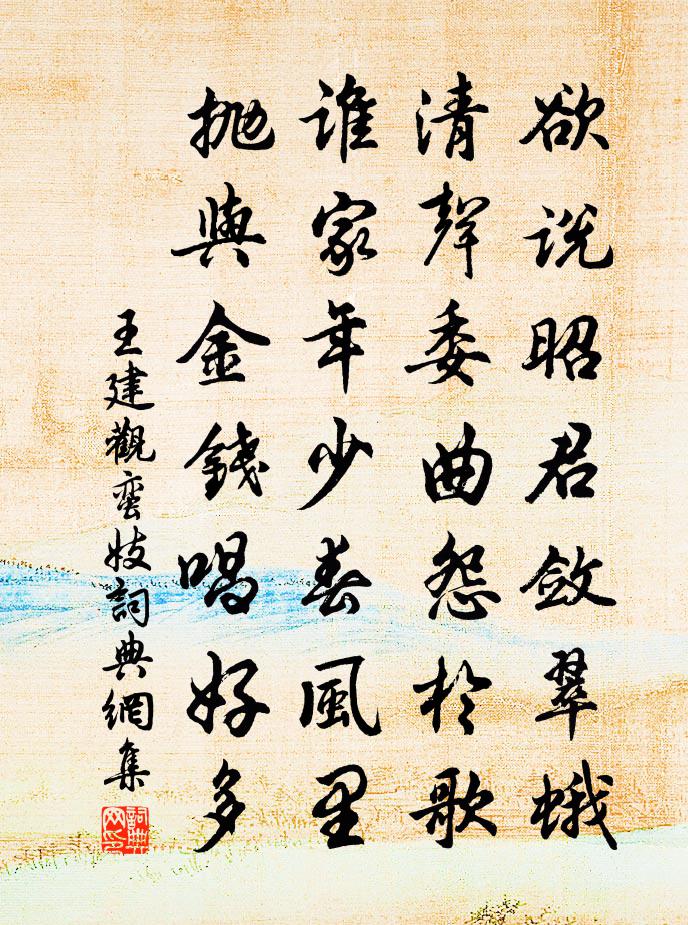 欲说昭君敛翠蛾
清聲委曲怨於歌
誰家年少春風里
抛與金錢唱好多
王建觀蛮妓詞典網集
詞典网印